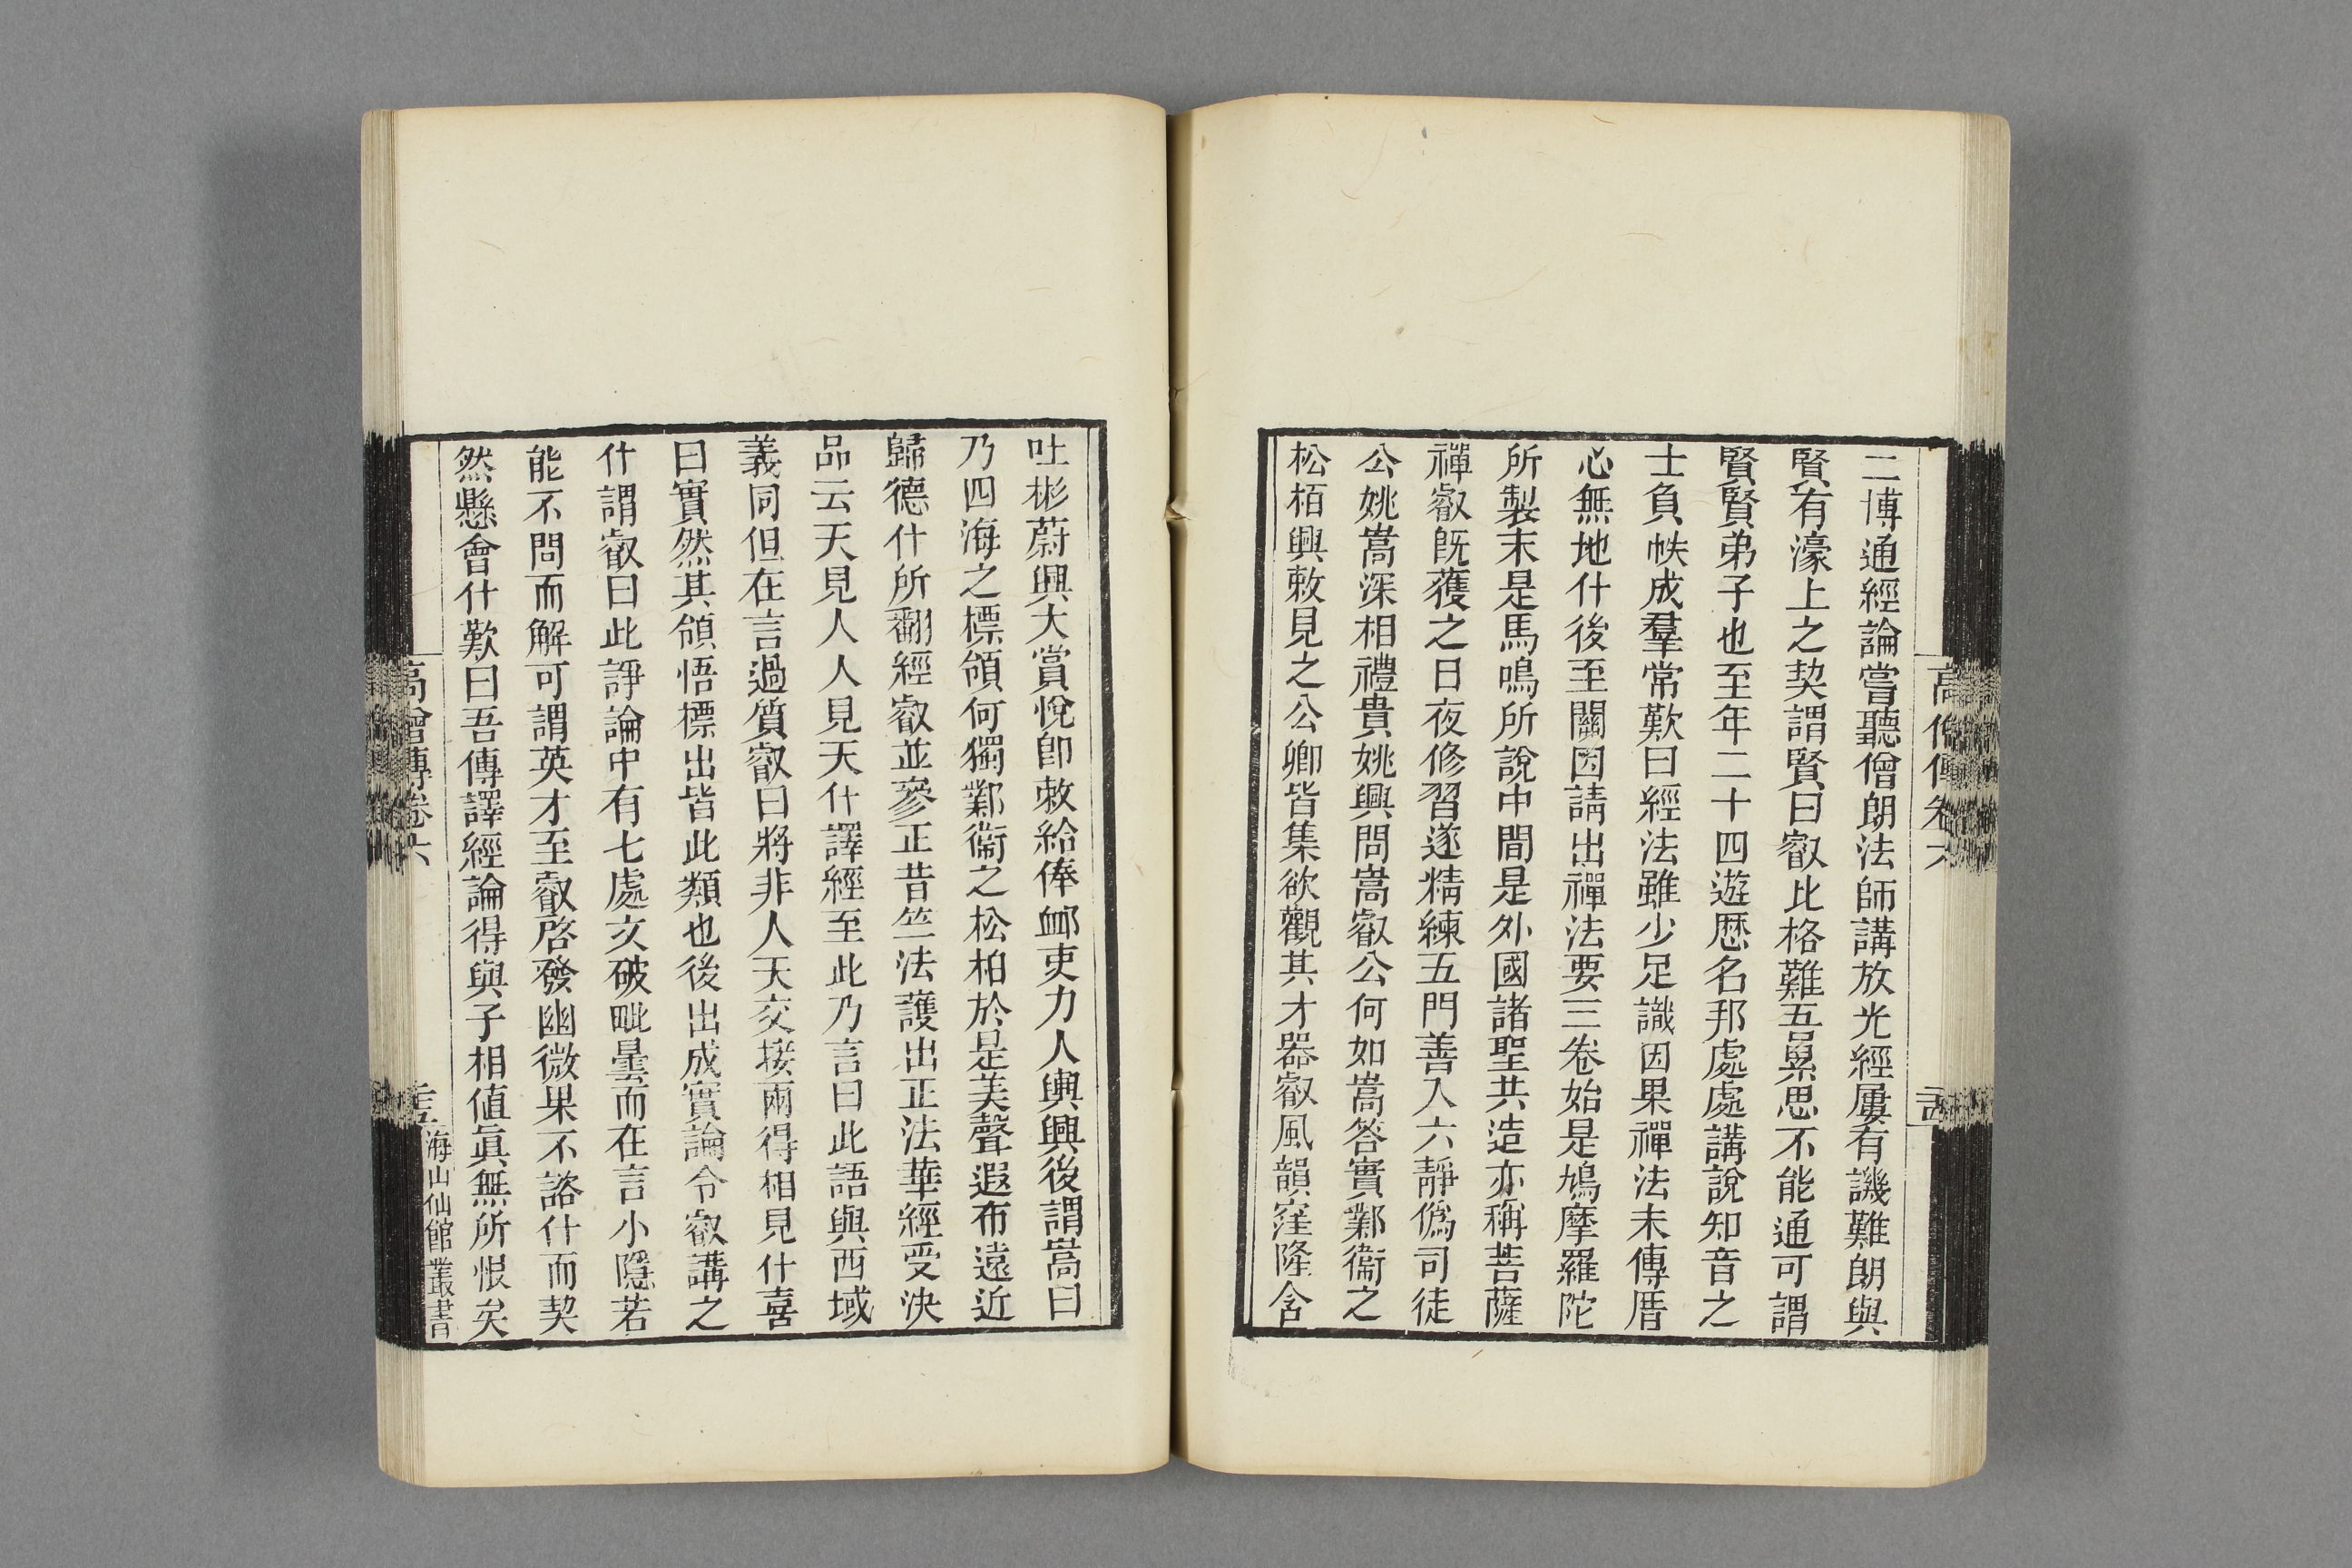 二博通經論嘗聽僧朗法師講放光經屢有譏難朗與
賢有濠上之契謂賢曰叡比格難吾累思不能通可謂
賢賢弟子也至年二十四遊歷名邦處處講說知音之
士負帙成羣常歎曰經法雖少足識因果禪法未傳厝
心無地什後至關因請出禪法要三卷始是鳩摩羅陀
所製末是馬鳴所說中間是外國諸聖共造亦稱菩薩
禪叡旣獲之日夜修習遂精練五門善入六靜僞司徒
公姚嵩深相禮貴姚興問嵩叡公何如嵩答實鄴衞之
松栢興敕見之公卿皆集欲觀其才器叡風韻窪隆含
高僧傳卷六
吐彬蔚興大賞悅卽敕給俸䘏吏力人輿興後謂嵩曰
乃四海之標領何獨鄴衞之松柏於是美聲遐布遠近
歸德什所翻經叡並參正昔竺法護出正法華經受決
品云天見人人見天什譯經至此乃言曰此語與西域
義同但在言過質叡曰將非人天交接兩得相見什喜
曰實然其領悟標出皆此類也後出成實論令叡講之
什謂叡曰此諍論中有七處文破毗曇而在言小隱若
能不問而解可謂英才至叡啓發幽微果不諮什而契
然懸會什歎曰吾傳譯經論得與子相値眞無所恨矣
高僧傳卷六
海山仙館叢書